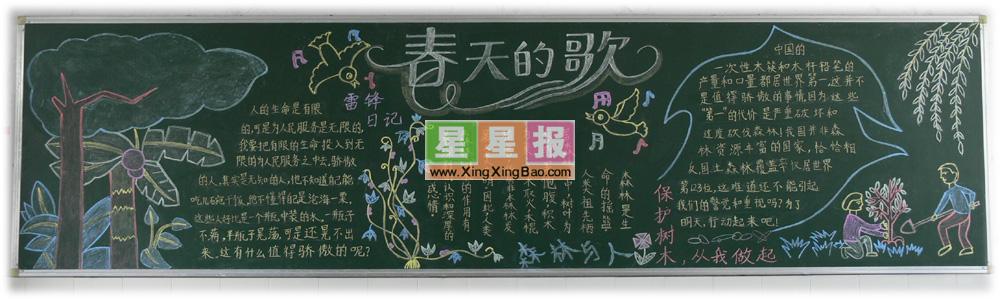 春天的歌
雷锋
日记
人的生命是有限
的,可是为人民服务是无限的,
我要把有限的生命投入到无
限的为人民服务之中去,骄傲
的人,其实是无知的人,他不知道自己能
吃几碗干饭,他不懂得自己是沧海一粟,
这些人好比是一个瓶中装的水,一瓶子
不满,半瓶子晃荡,可是还晃不出
来,这有什么值得骄傲的呢?
星星报
www.XingXingBao.com
森林是人类
命的摇篮
人类祖先栖
森林与人
保护树木,从我做起
中国的
一次性木筷和木杆铅笔的
产量和口量都居世界第一,这并不
是值得骄傲的事情,因为这些
“第一”的代价是严重破坏和
过度砍伐森林!我国并非森
林资源丰富的国家,恰恰相
反,国土森林覆盖率仅居世界
第123位,这难道还不能引起
我们的警觉和重视吗?为了
明天,行动起来吧!